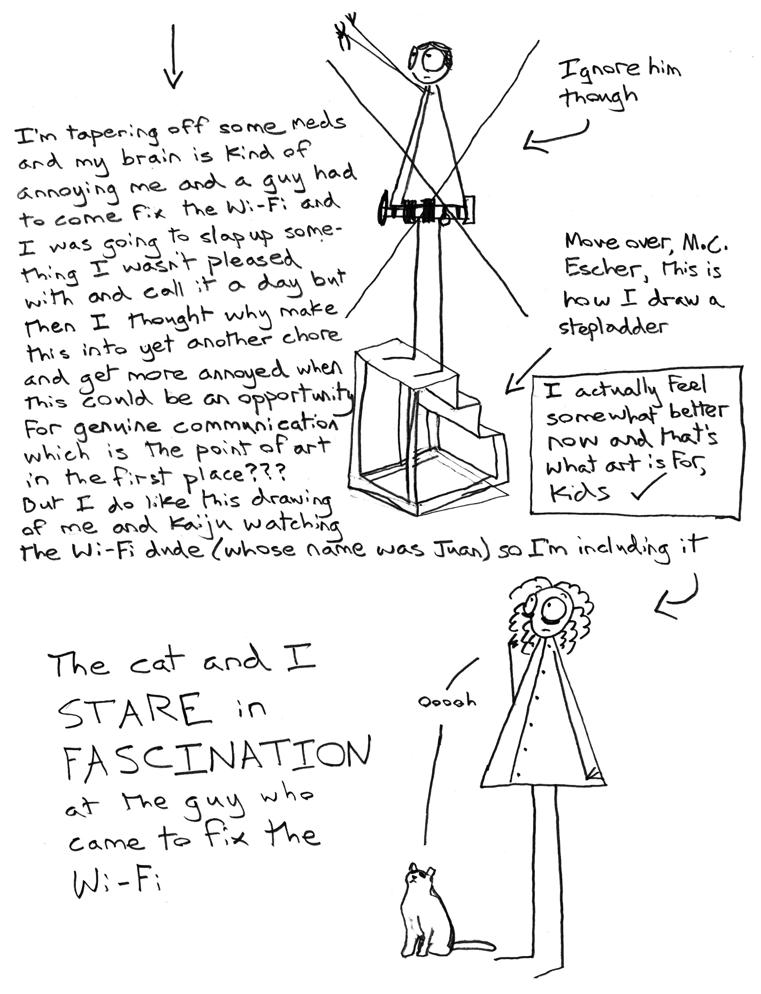 I'm tapering off some meds
and my brain is kind of
annoying me and a guy had
to come fix the Wi-Fi and
I was going to slap up some-
thing I wasn't pleased
with and call it a day but
then I thought why make
this into yet another chore
and get more annoyed when
this could be an opportunity
for genuine communication
which is the point of art
in the first place???
But I do like this drawing
of me and Kaiju watching
the Wi-Fi dude (whose name was Juan) so I'm including it
Ignore him
though
Move over, M.C.
Escher, this is
how I draw a
stepladder
I actually feel
somewhat better
now and that's
what art is for,
kids ✓
The cat and I
STARE in
FASCINATION
at the guy who
came to fix the
Wi-Fi
Ooooh